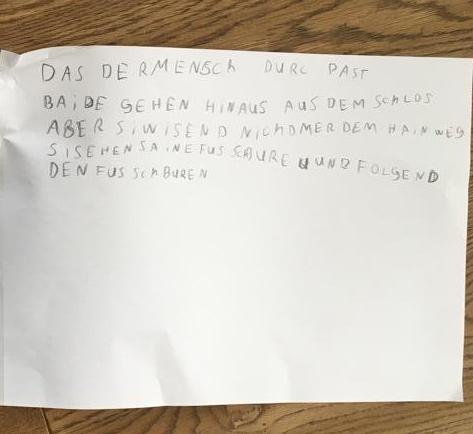 DAS DERMENSCh DURC PAST
BAiDE GEHEN HiNAUS AUS DEM SChLOS
ABER SiWiSEND NiCHDMER DEM HAiN WEG
SiSEHEN SAiNE FUS SCHURE UUND FOLGEND
DEN FUS SchBUREN